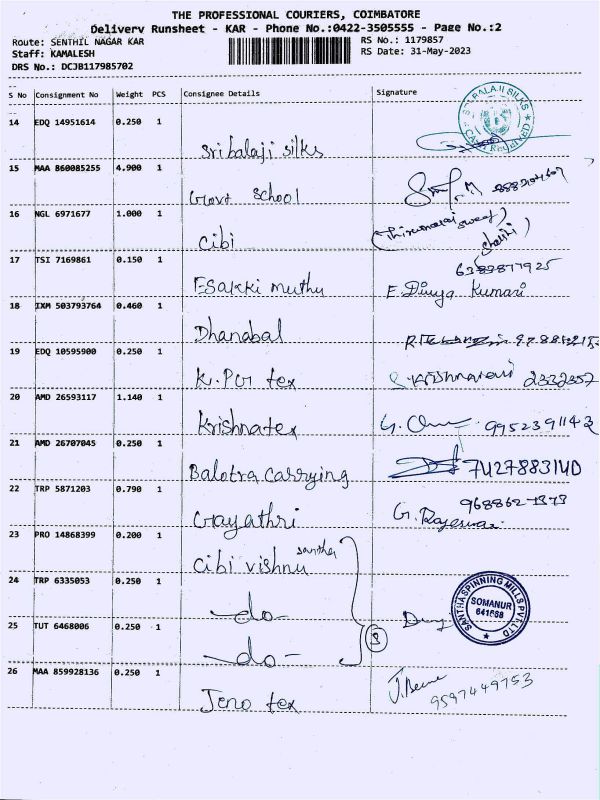 THE PROFESSIONAL COURIERS, COIMBATORE
Delivery Runsheet - KAR - Phone No.:0422-3505555 - Page No.:2
Route: SENTHIL NAGAR KAR RS No.: 1179857
Staff: KAMALESH RS Date: 31-May-2023
DRS No.: DCJB117985702
S No Consignment No Weight PCS Consignee Details Signature
14 EDQ 14951614 0.250 1
Sri balaji silks
15 MAA 860085255 4.900 1
Govt School
16 NGL 6971677 1.000 1
Cibi
17 TSI 7169861 0.150 1 6383877925
Esakki muthu E. Divya Kumari
18 IXM 503793764 0.460 1
Dhanabal
19 EDQ 10595900 0.250 1
K. Por tex 2332357
20 AMD 26593117 1.140 1
Krishnatex 9952391143
21 AMD 26707045 0.250 1
Balotra Carrying 7427883140
22 TRP 5871203 0.790 1
Gayathri G. Rajeswari
23 PRO 14868399 0.200 1
Cibi vishnu santha
24 TRP 6335053 0.250 1
-do-
SANTHA SPINNING MILLS PVT. LTD
SOMANUR
641668
25 TUT 6468006 0.250 1
-do-
26 MAA 859928136 0.250 1
Jeno tex 9597449753